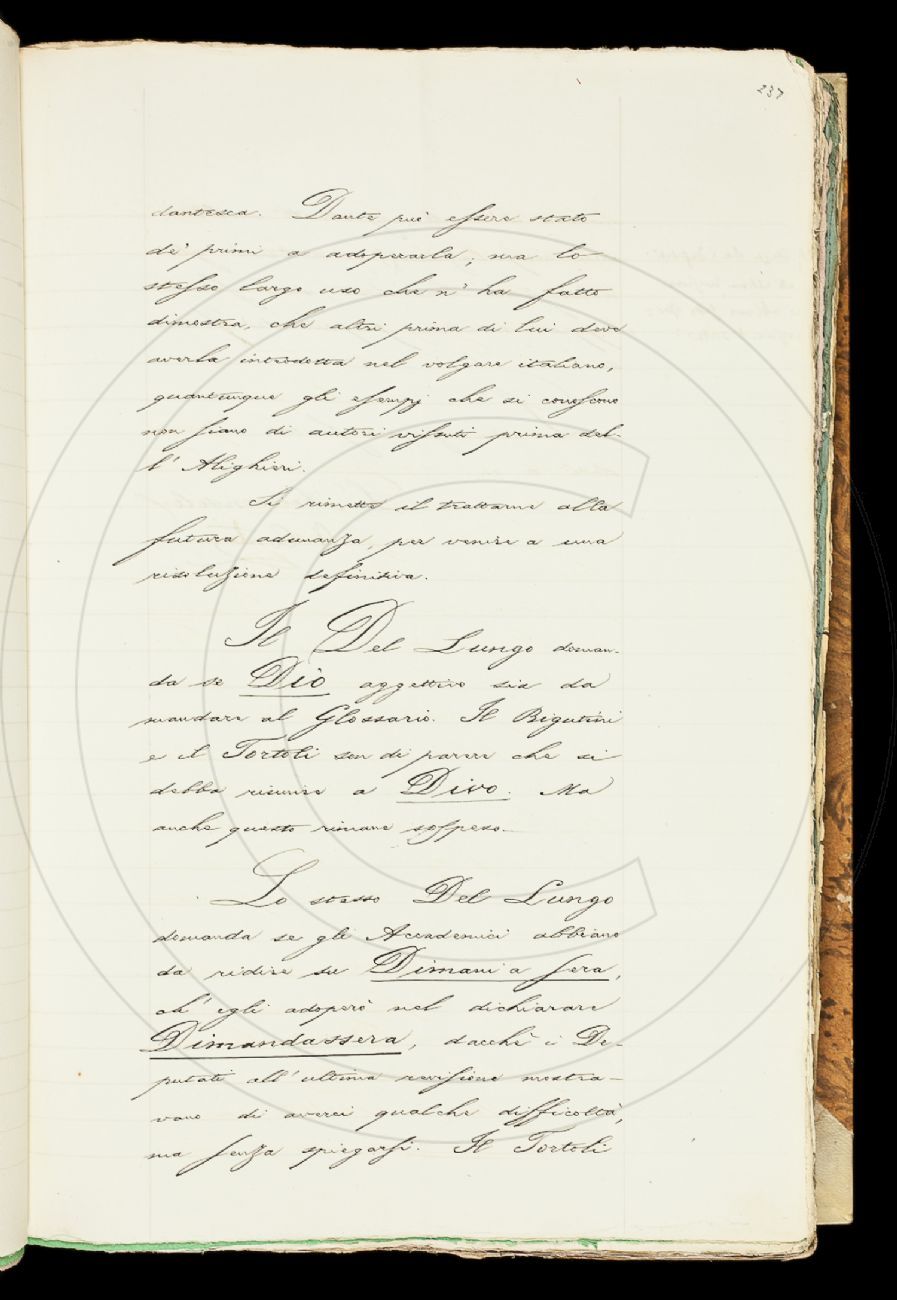 237
dantesca. Dante può essere stato
de' primi a adoperarla; ma lo
stesso largo uso che n' ha fatto
dimostra, che altri prima di lui deve
averla introdotta nel volgare italiano,
quantunque gli esempj che si conoscono
non siano di autori vissuti prima del-
l' Alighieri.
Si rimette il trattarne alla
futura adunanza, per venire a una
risoluzione definitiva.
Il Del Lungo doman-
da se Dio aggettivo sia da
mandare al Glossario. Il Rigutini
e il Tortoli son di parere che si
debba riunire a Divo. Ma
anche questo rimane sospeso.
Lo stesso Del Lungo
domanda se gli Accademici abbiano
da ridire su Dimani a sera,
ch' egli adoperò nel dichiarare
Dimandassera, dacchè i De-
putati all' ultima revisione mostra-
vano di averci qualche difficoltà,
ma senza spiegarsi. Il Tortoli